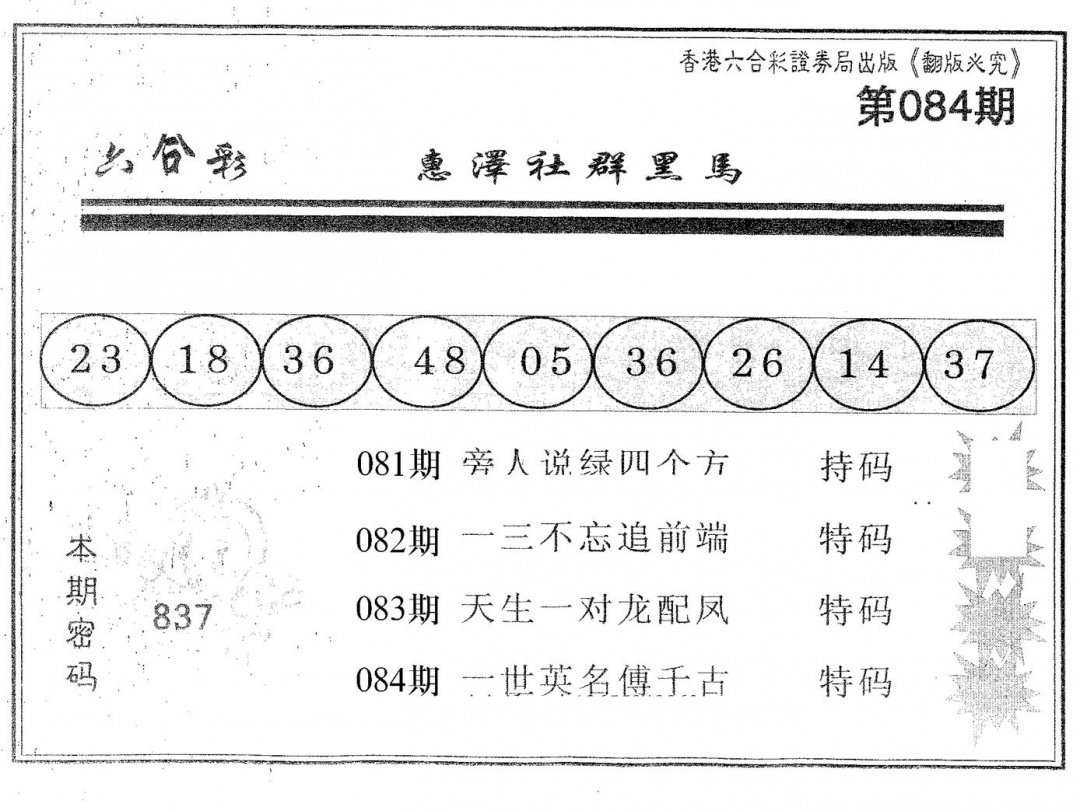 香港六合彩證券局出版《翻版必究》
第084期
六合彩 惠澤社群黑馬
23 18 36 48 05 36 26 14 37
081期 旁人说绿四个方 持码
082期 一三不忘追前端 特码
083期 天生一对龙配凤 特码
084期 一世英名傅千古 特码
本期密码
837